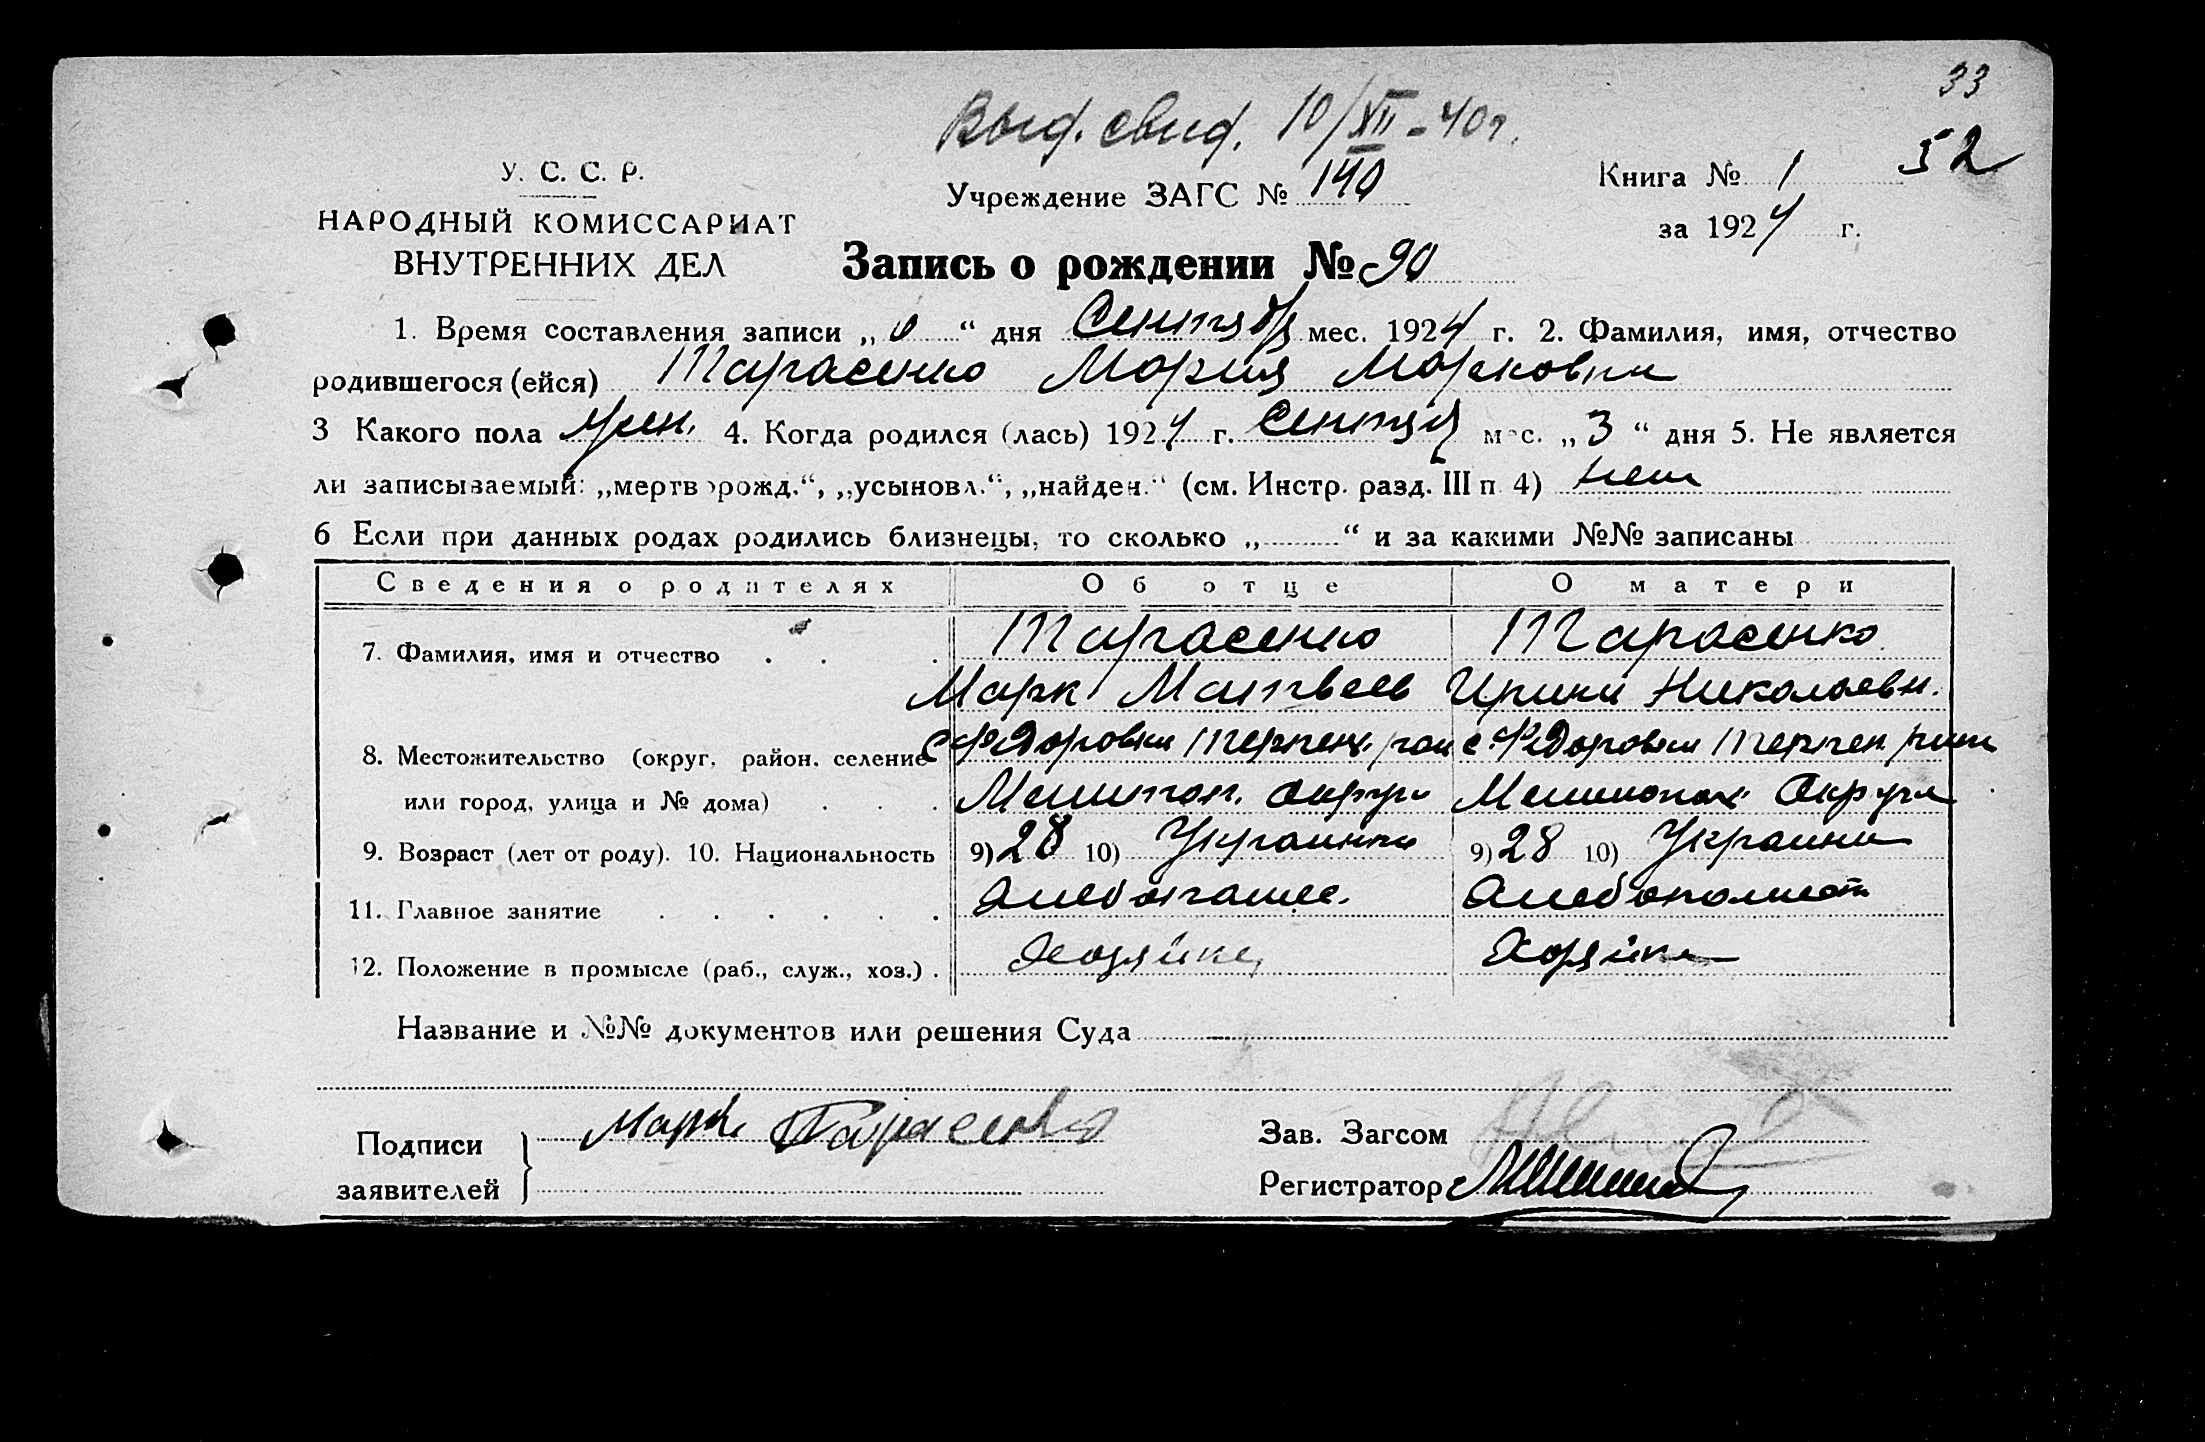 33
Выд. свид. 10/XII-40г.
52
У. С. С. Р.
НАРОДНЫЙ КОМИССАРИАТ
ВНУТРЕННИХ ДЕЛ
Учреждение ЗАГС № 140
Книга № 1
за 1924 г.
Запись о рождении № 90
1. Время составления записи „ “ дня Сентябр мес. 1924 г. 2. Фамилия, имя, отчество
родившегося (ейся) Тарасенко Мария Марковна
3 Какого пола жен. 4. Когда родился (лась) 1924 г. Сентяб мес. „3“ дня 5. Не является
ли записываемый: „мертворожд.“, „усыновл.“, „найден.“ (см. Инстр. разд. III п. 4) нет
6 Если при данных родах родились близнецы, то сколько „ “ и за какими №№ записаны
Сведения о родителях Об отце О матери
7. Фамилия, имя и отчество Тарасенко Тарасенко
Марк Матвеев Ирина Николаевн.
8. Местожительство (округ, район, селение с. Федоровка Терпен. рай с. Федоровка Терпен. рай
или город, улица и № дома) Мелитоп. округ Мелитопол. Округа
9. Возраст (лет от роду). 10. Национальность 9) 28 10) Украинка 9) 28 10) Украинка
11. Главное занятие Хлебопашес. Хлебопашест
12. Положение в промысле (раб., служ., хоз.) Хозяйка Хозяйка
Название и №№ документов или решения Суда
Подписи
заявителей
Марк Тарасенко
Зав. Загсом
Регистратор